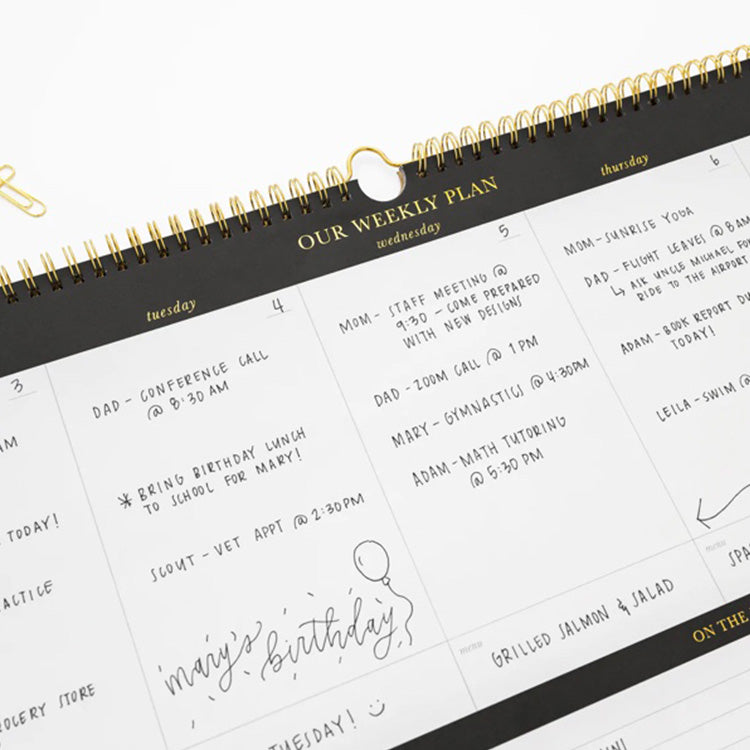 OUR WEEKLY PLAN
3
TODAY!
STORE
tuesday
4
DAD - CONFERENCE CALL
@ 8:30 AM
* BRING BIRTHDAY LUNCH
TO SCHOOL FOR MARY!
SCOUT - VET APPT @ 2:30PM
mary's birthday
wednesday
5
MOM - STAFF MEETING @
9:30 - COME PREPARED
WITH NEW DESIGNS
DAD - ZOOM CALL @ 1 PM
MARY - GYMNASTICS @ 4:30PM
ADAM - MATH TUTORING
@ 5:30 PM
menu
GRILLED SALMON & SALAD
thursday
6
MOM - SUNRISE YOGA
DAD - FLIGHT LEAVES @ 8AM
↳ ASK UNCLE MICHAEL
RIDE TO THE AIRPORT
ADAM - BOOK REPORT
TODAY!
LEILA - SWIM @
menu
ON THE